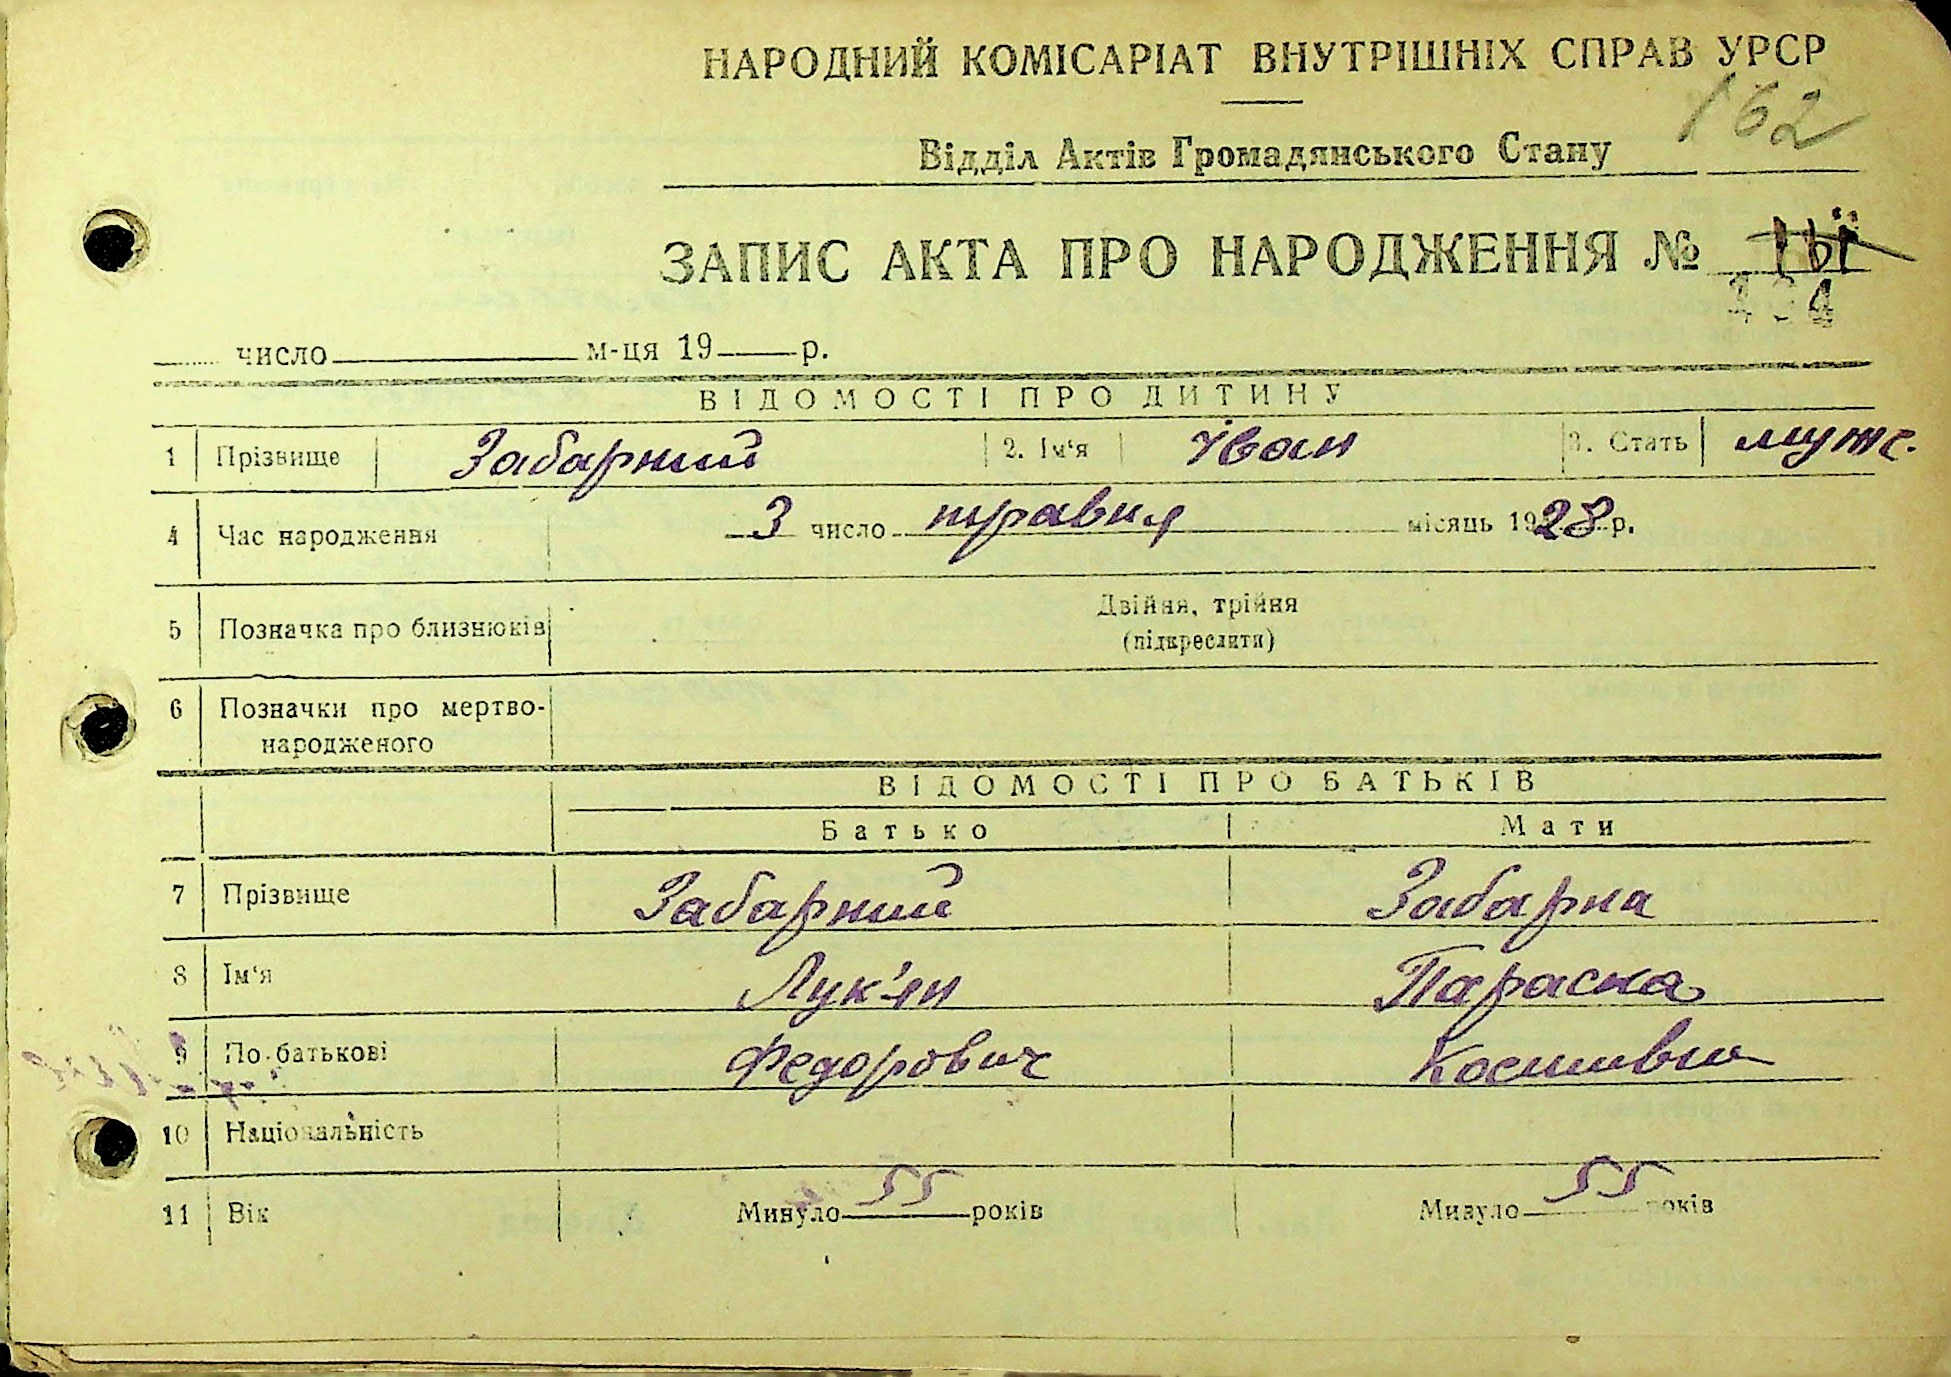 НАРОДНИЙ КОМІСАРІАТ ВНУТРІШНІХ СПРАВ УРСР
162
Відділ Актів Громадянського Стану
ЗАПИС АКТА ПРО НАРОДЖЕННЯ №
число м-ця 19 р.
ВІДОМОСТІ ПРО ДИТИНУ
1 Прізвище Забарний 2. Ім‘я Іван 3. Стать муж.
4 Час народження 3 число травня місяць 1928 р.
5 Позначка про близнюків Двійня, трійня
(підкреслити)
6 Позначки про мертво-
народженого
ВІДОМОСТІ ПРО БАТЬКІВ
Батько Мати
7 Прізвище Забарний Забарна
8 Ім‘я Лук'ян Параска
9 По-батькові Федорович
10 Національність
11 Вік Минуло 55 років Минуло 55 років